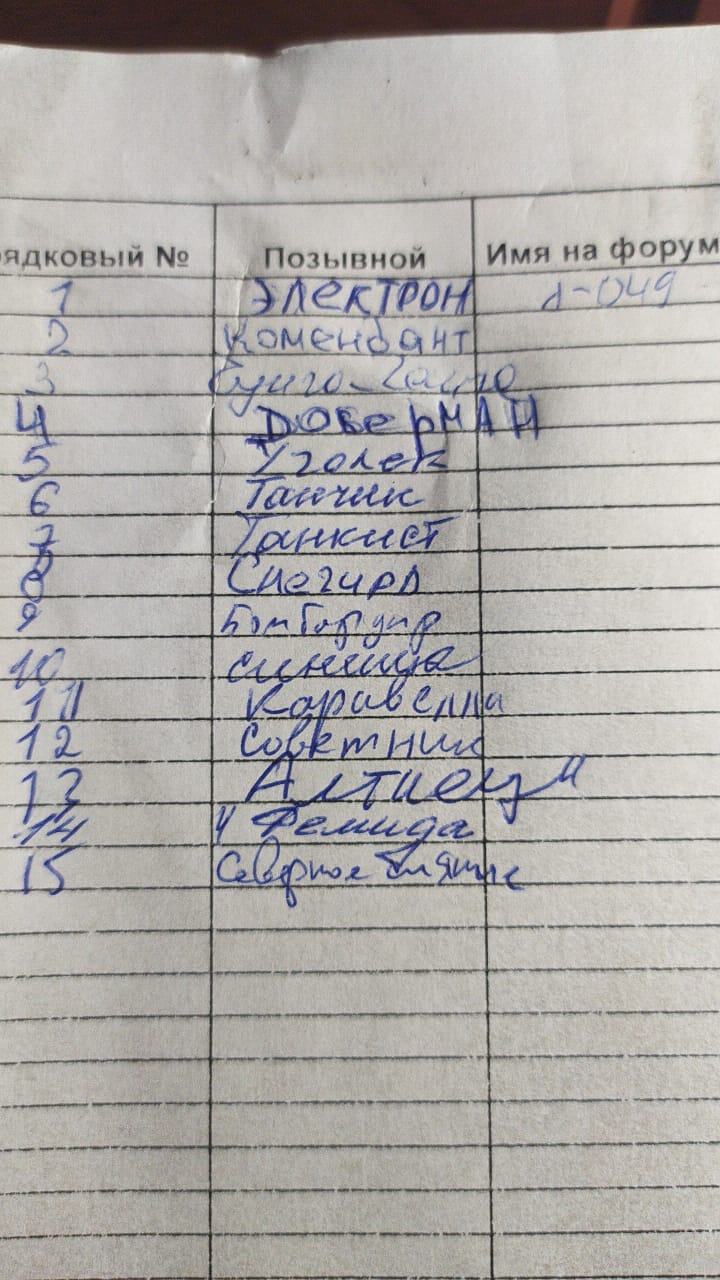 рядковый № Позывной Имя на форум
1 ЭЛЕКТРОН
2 Комендант
3
4 ДОБЕРМАН
5 Уголек
6 Танчик
7 Танкист
8 Снегирь
9 Бомбардир
10 синица
11 Каравелла
12 Советник
13
14 "Фемида
15 Северное сияние